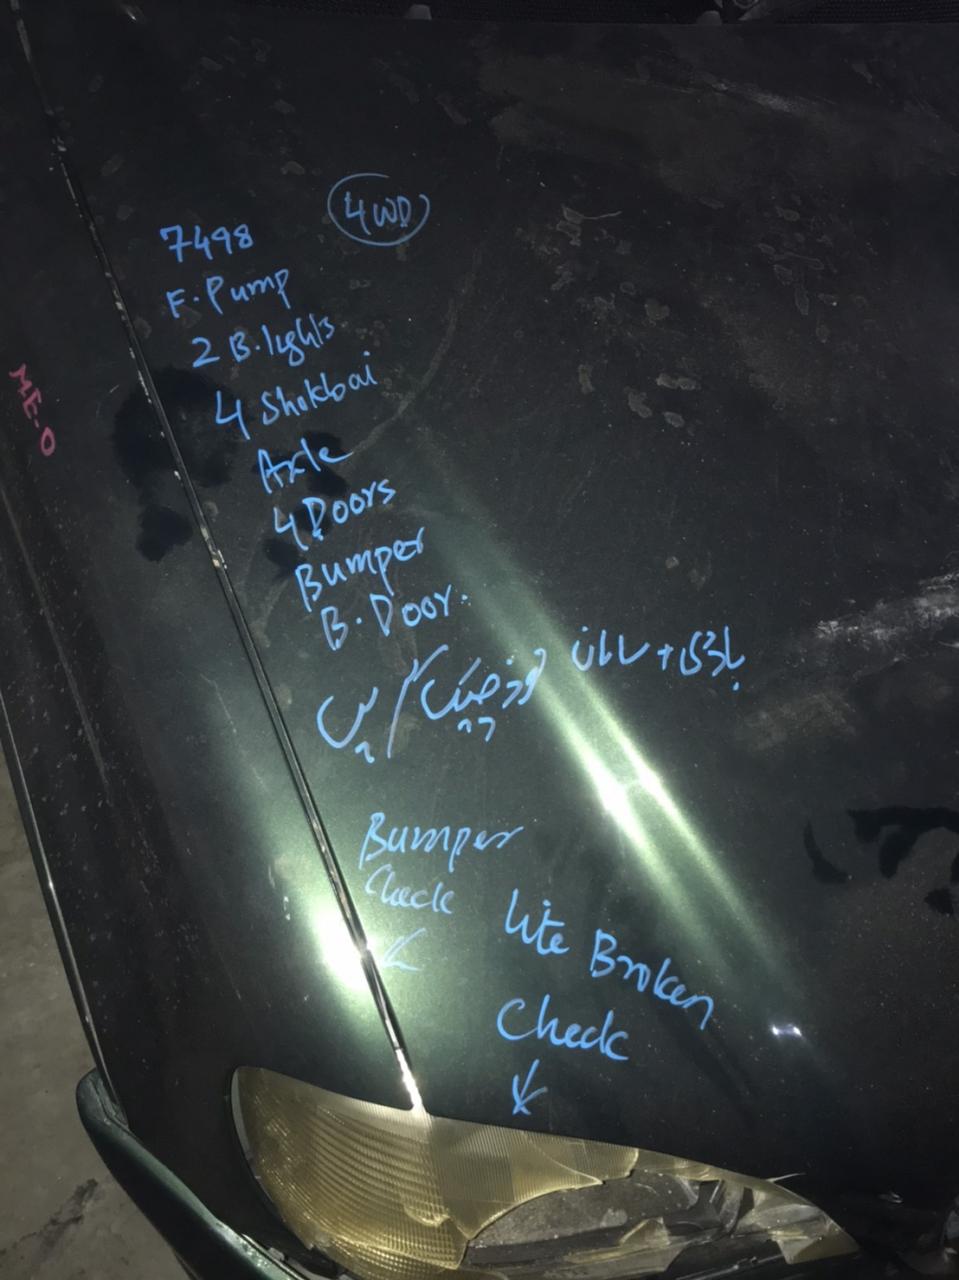 4WD
7498
F. Pump
2 B.lights
4 Shokbai
Axle
4 Doors
Bumper
B. Door.
باڈی + سامان
ME-0
Bumper
Check
Lite Broken
Check